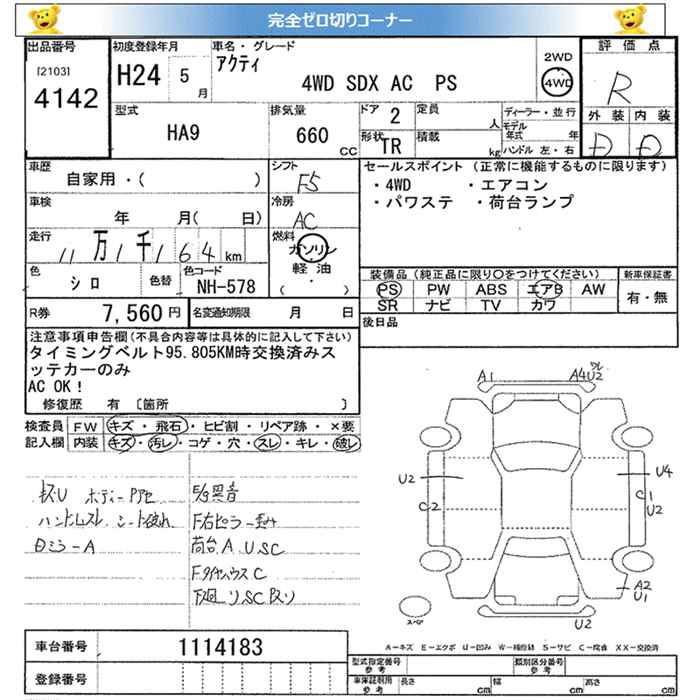 完全ゼロ切りコーナー
出品番号
[2103]
4142
初度登録年月
H24 5 月
車名・グレード
アクティ
4WD SDX AC PS
2WD
4WD
評価点
R
外装 内装
D D
型式
HA9
排気量
660 cc
ドア 2
形状 TR
定員 人
積載 kg
ディーラー・並行
モデル年式 年
ハンドル 左・右
車歴
自家用・( )
シフト
F5
車検
年 月( 日)
冷房
AC
走行
11万1千164km
燃料
ガソリン
軽油
( ・ )
色
シロ
色替
色コード
NH-578
R券 7,560円
名変通知期限 月 日
セールスポイント(正常に機能するものに限ります)
・4WD ・エアコン
・パワステ ・荷台ランプ
装備品(純正品に限り○をつけてください)
PS PW ABS エアB AW
SR ナビ TV カワ
新車保証書
有・無
後日品
注意事項申告欄(不具合内容等は具体的に記入して下さい)
タイミングベルト95.805KM時交換済みス
テッカーのみ
AC OK!
修復歴 有 [箇所 ]
検査員 FW キズ・飛石・ヒビ割・リペア跡・×要
記入欄 内装 キズ・汚レ・コゲ・穴・スレ・キレ・破レ
ハンドルスレ シート破れ
荷台A.U.SC
A1
A4 U2
U2
U4
C2
C1
U2
A2
U1
U2
スペア
A-キズ E-エクボ U-凹み W-補修跡 S-サビ C-腐食 XX-交換済
車台番号 1114183
登録番号
型式指定番号 参考
類別区分番号 参考
車庫証明用 参考 長さ cm 幅 cm 高さ cm